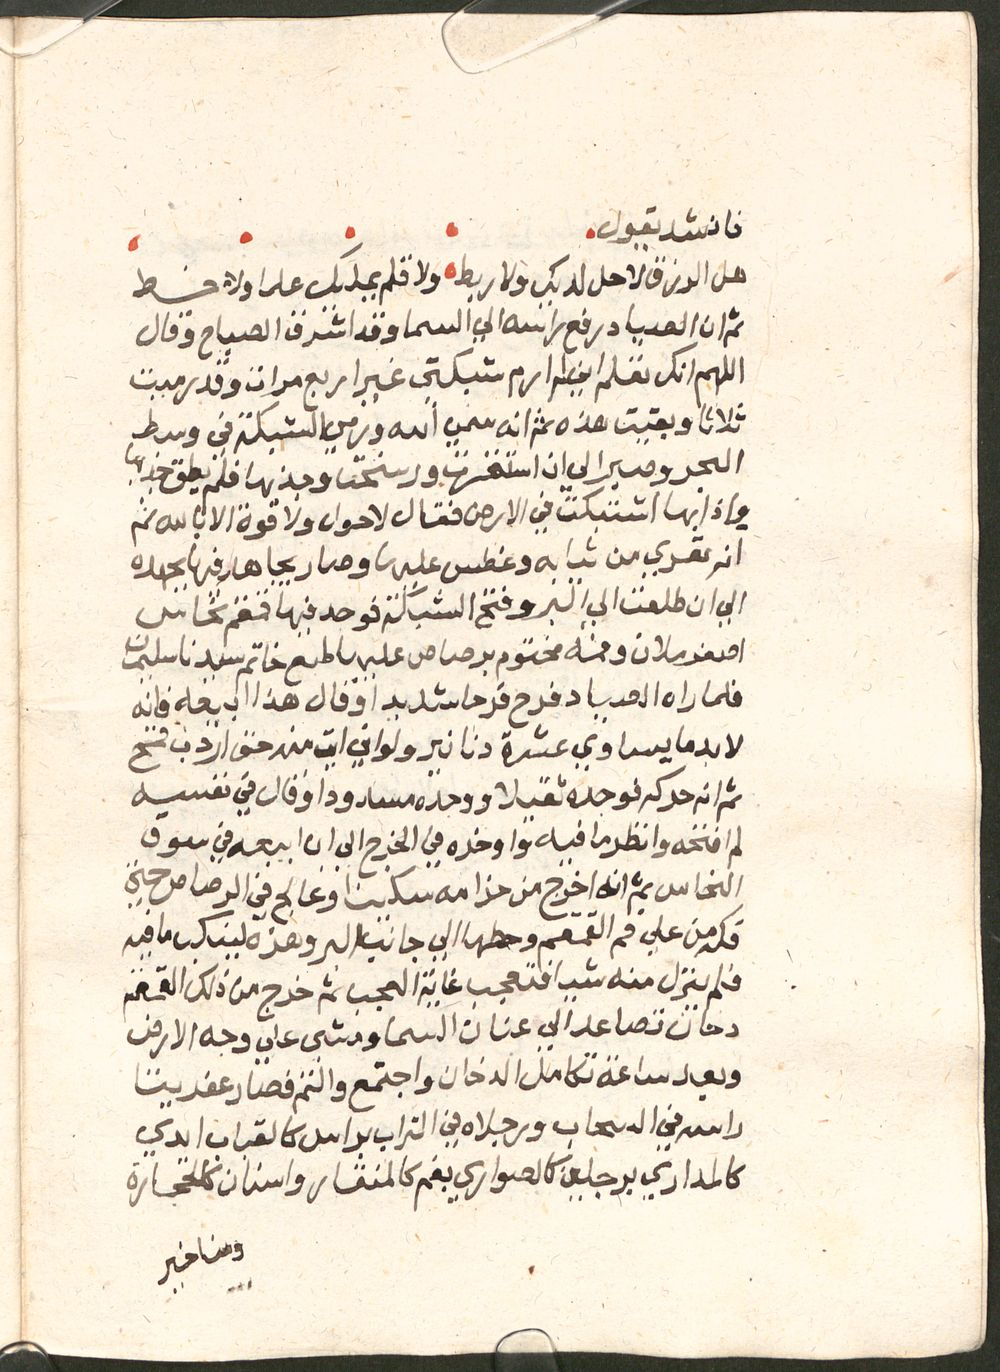 فانشد يقول
هل الرزق لا حل لديك ولا ربط ولا قلم يجديك علما ولا خط
ثم ان الصياد رفع راسه الي السما وقد اشرق الصباح وقال
اللهم انك تعلم اني لم ارم شبكتي غير اربع مرات وقد رميت
ثلاثا وبقيت هذه ثم انه سمي الله ورمي الشبكة في وسط
البحر وصبر الي ان استقرت ورسخت وجذبها فلم يطق جذبها
واذا بها اشتبكت في الارض فقال لا حول ولا قوة الا بالله ثم
انه تعري من ثيابه وغطس عليها وصار يجاهد فيها بجهده
الي ان طلعت الي البر وفتح الشبكة فوجد فيها قمقم نحاس
اصفر ملان وفمه مختوم برصاص عليه طبع خاتم سيدنا سليمان
فلما راه الصياد فرح فرحا شديدا وقال هذا ابيعه فانه
لا بد ما يساوي عشرة دنانير ولو اني ابيت منه حتي اردب قمح
ثم انه حركه فوجده ثقيلا ووجده مسدودا وقال في نفسه
لم افتحه وانظر ما فيه واوخده في الخرج الي ان ابيعه في سوق
النحاس ثم انه اخرج من حزامه سكينا وعالج في الرصاص حتي
فكه من علي فم القمقم وحطها الي جانب البر وهزه لينكب ما فيه
فلم ينزل منه شيا فتعجب غاية العجب ثم خرج من ذلك القمقم
دخان تصاعد الي عنان السما ومشى علي وجه الارض
وبعد ساعة تكامل الدخان واجتمع والتم فصار عفريتا
راسه في السحاب ورجلاه في التراب براس كالقراب ايدي
كالمداري برجلين كالصواري بفم كالمغار واسنان كالحجارة
ومناخير